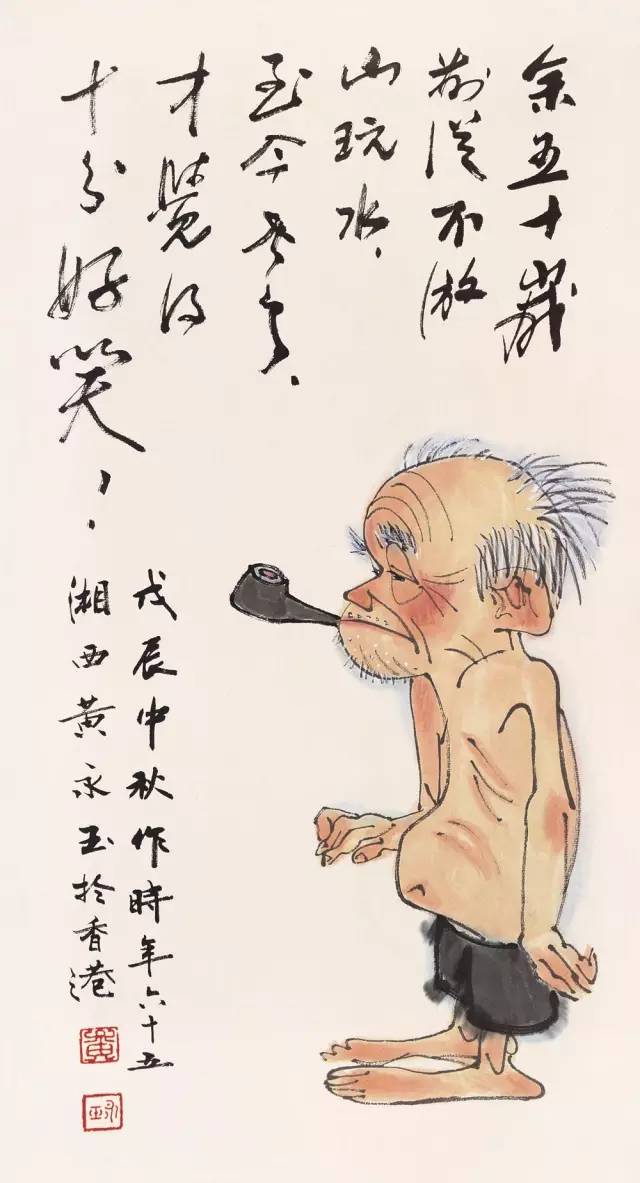 余五十歲
前從不游
山玩水、
至今老矣、
才覺得
十分好笑、、
戊辰中秋作時年六十五
湘西黃永玉於香港
黃
永玉